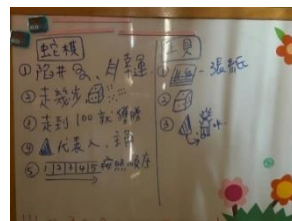 蛇棋
①陷井多、幸運
②走幾步
③走到100就獲勝
④代表人、
⑤1 2 3 4 5 按照順序
工具
①一張紙
②
③